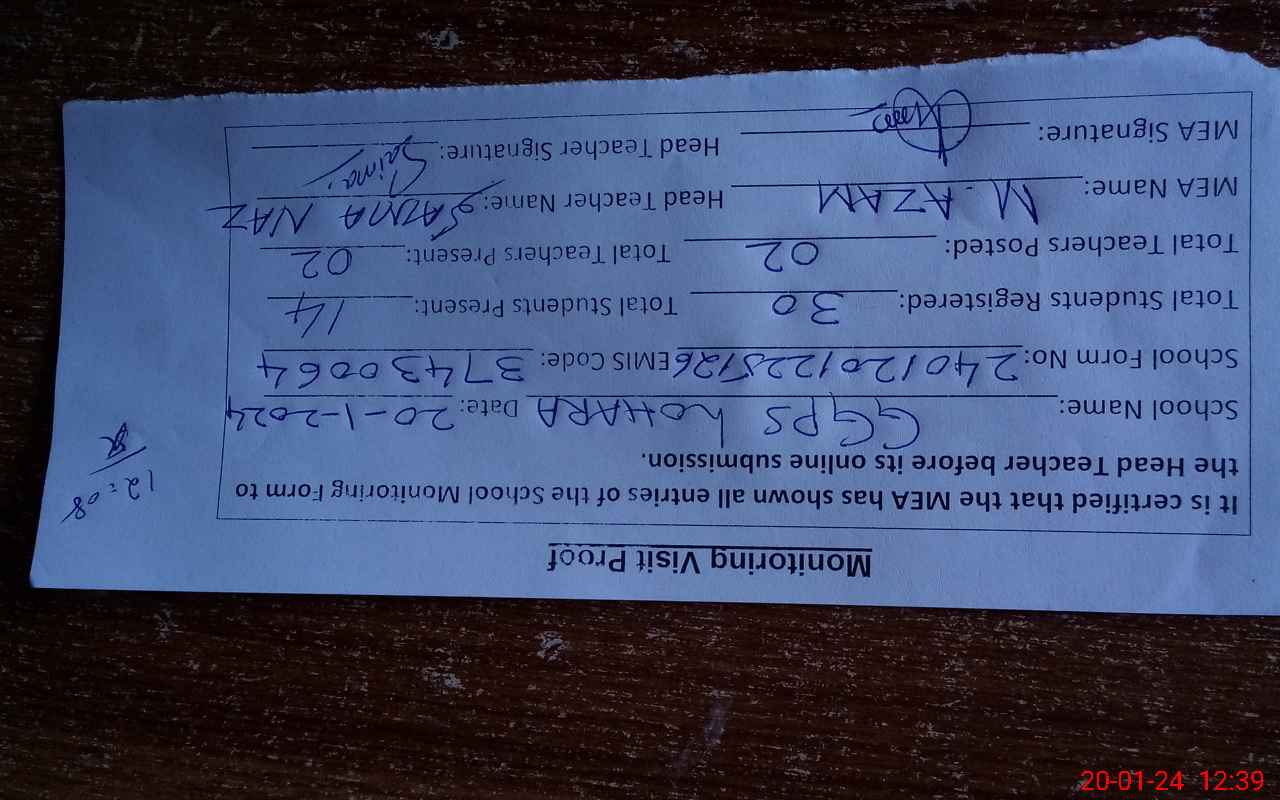 Monitoring Visit Proof
It is certified that the MEA has shown all entries of the School Monitoring Form to
the Head Teacher before its online submission.
School Name: GGPS LOHARA Date: 20-1-2024
School Form No: 2401201225126 EMIS Code: 37430064
Total Students Registered: 30 Total Students Present: 14
Total Teachers Posted: 02 Total Teachers Present: 02
MEA Name: M. AZAM Head Teacher Name: SAIMA NAZ
MEA Signature: Head Teacher Signature: Saima
12=08
20-01-24 12:39